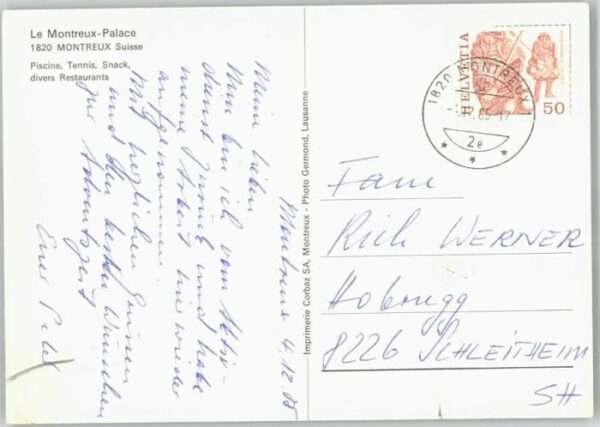 Le Montreux-Palace
1820 MONTREUX Suisse
Piscine, Tennis, Snack,
divers Restaurants
Montreux 4.12.85
Meine Lieben
Nun bin ich vom Aktiv-
dienst zurück und habe
meine Arbeit hier wieder
aufgenommen.
Mit herzlichen Grüssen
und den besten Wünschen
zur Adventszeit
Euer
Imprimerie Corbaz SA, Montreux - Photo Germond, Lausanne
1820 MONTREUX
2e
HELVETIA
50
Fam.
Rich WERNER
Hobrugg
8226 SCHLEITHEIM
SH